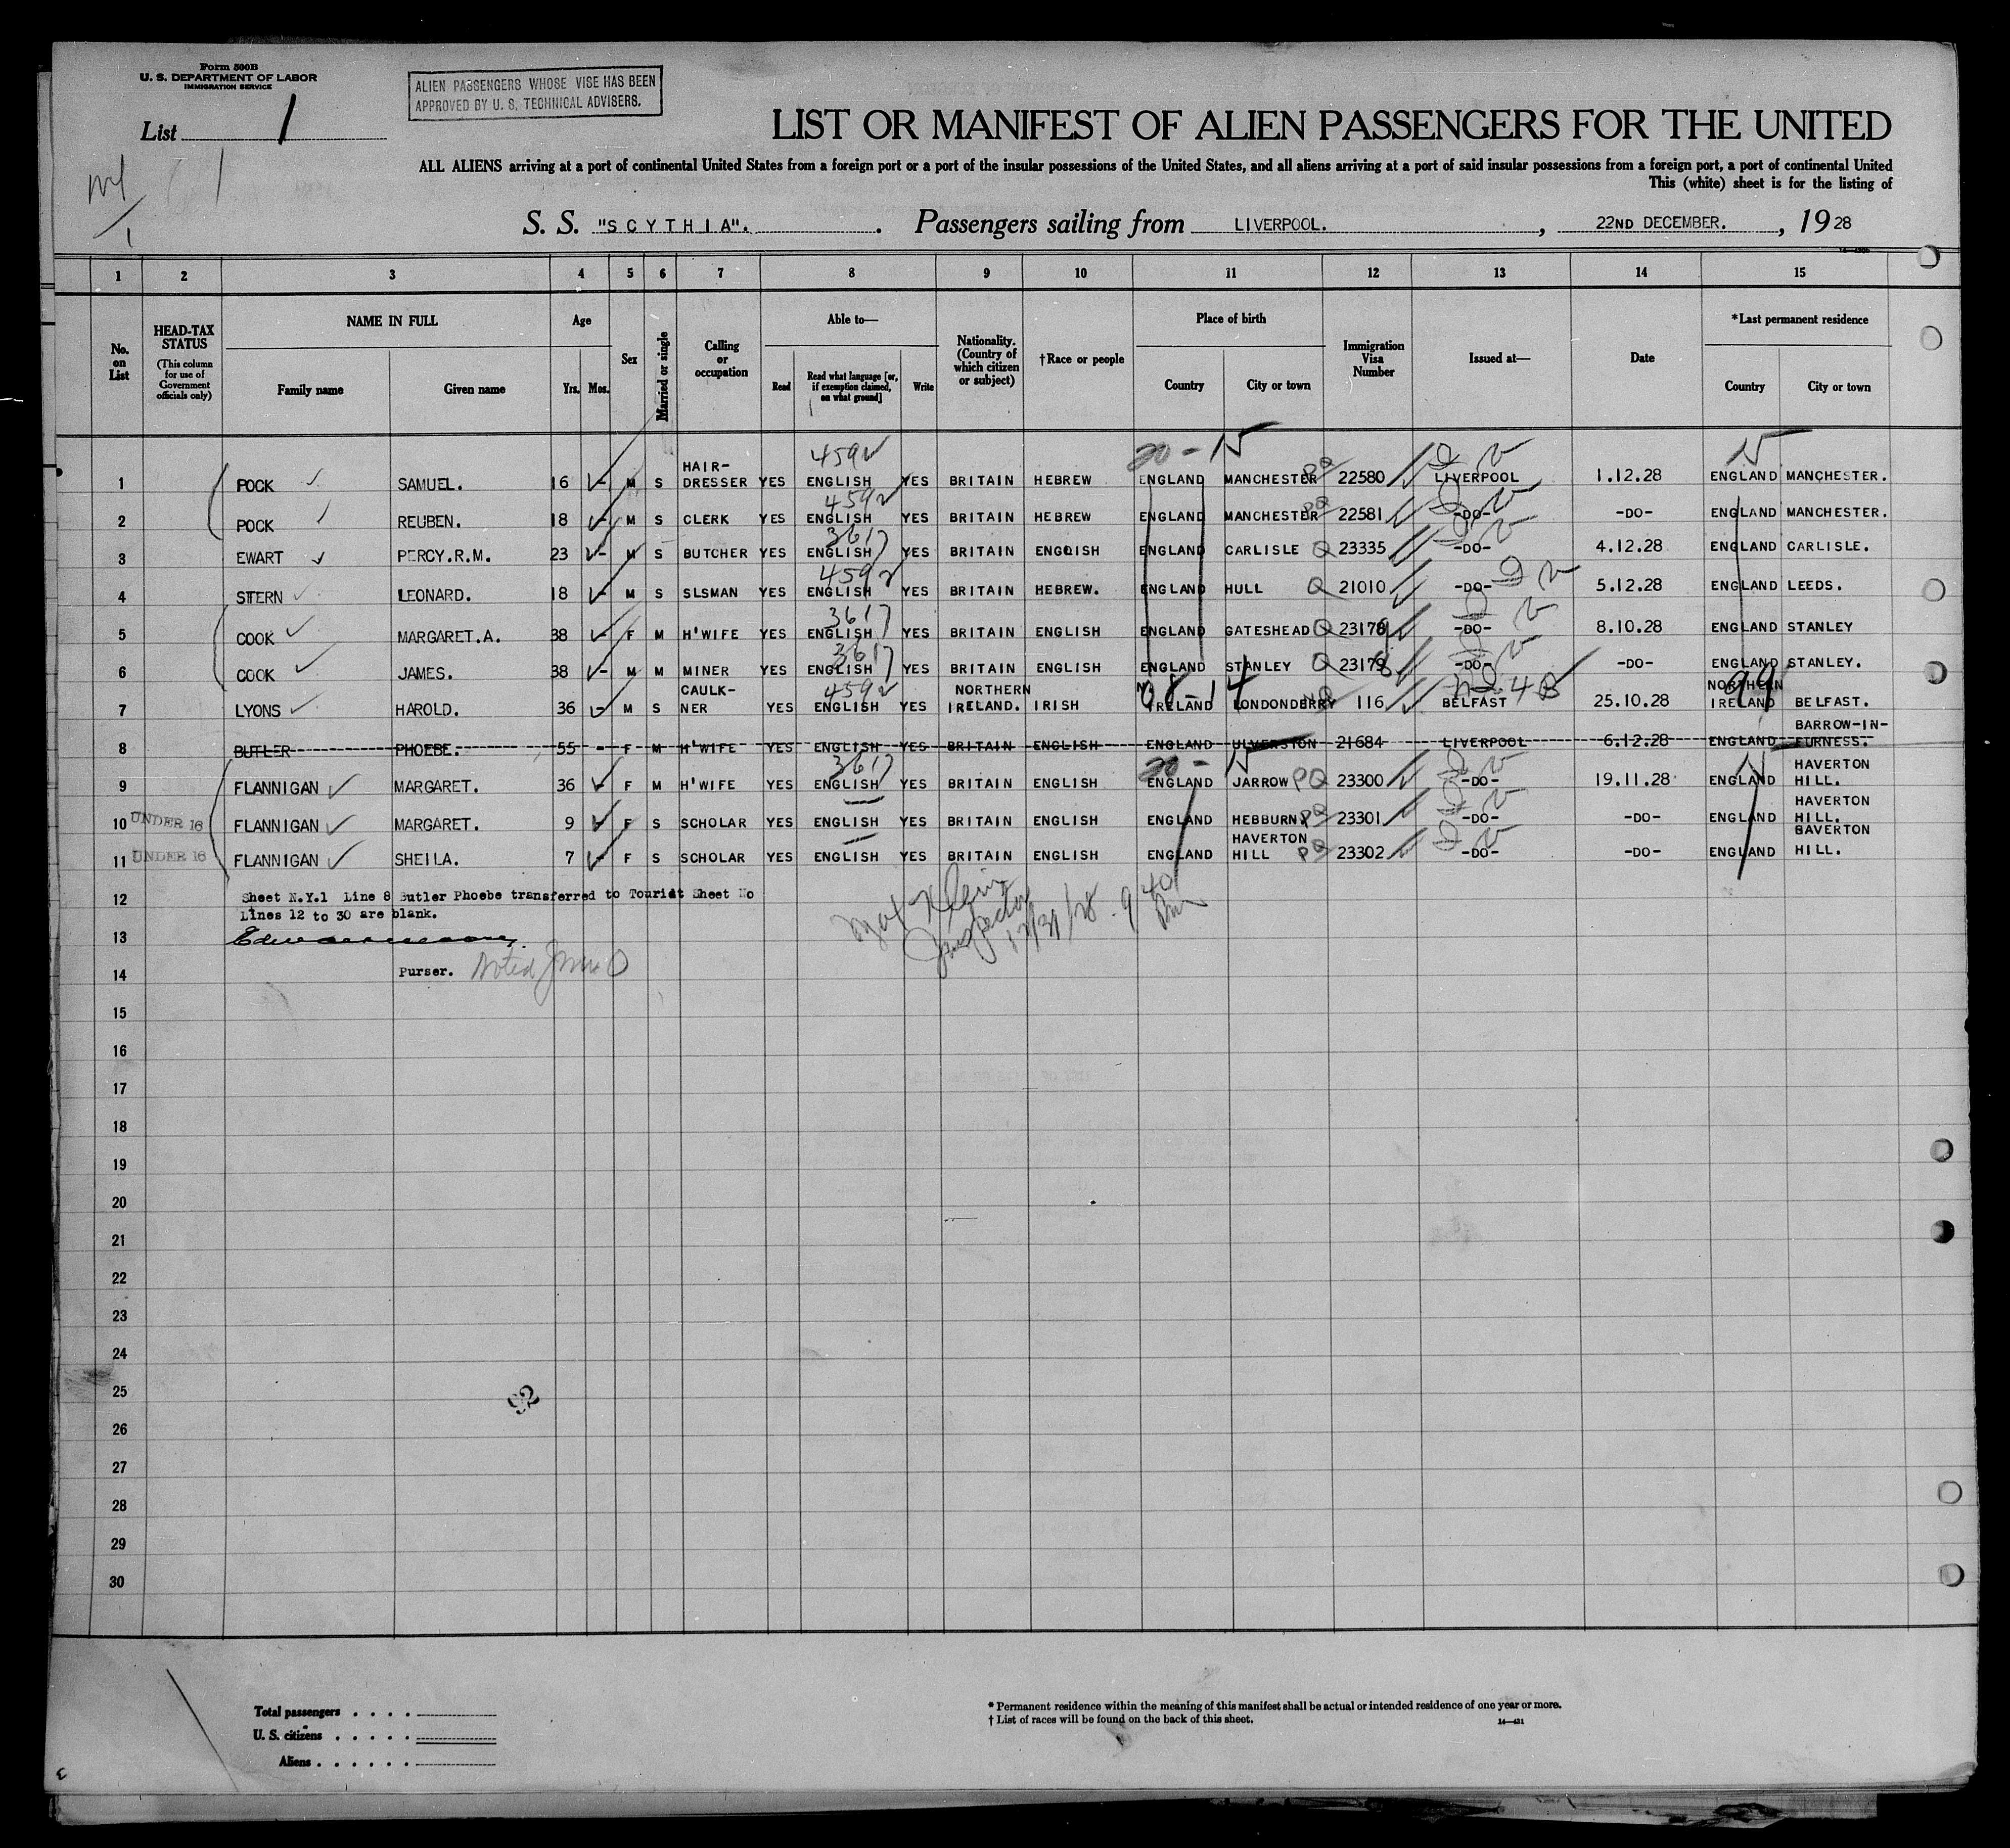 Form 500B
U. S. DEPARTMENT OF LABOR
IMMIGRATION SERVICE
ALIEN PASSENGERS WHOSE VISE HAS BEEN
APPROVED BY U. S. TECHNICAL ADVISERS.
List 1
LIST OR MANIFEST OF ALIEN PASSENGERS FOR THE UNITED
ALL ALIENS arriving at a port of continental United States from a foreign port or a port of the insular possessions of the United States, and all aliens arriving at a port of said insular possessions from a foreign port, a port of continental United
This (white) sheet is for the listing of
S. S. "SCYTHIA". Passengers sailing from LIVERPOOL. , 22ND DECEMBER. , 1928
1 2 3 4 5 6 7 8 9 10 11 12 13 14 15
No. on List
HEAD-TAX STATUS
(This column for use of Government officials only)
NAME IN FULL
Family name Given name
Age
Yrs. Mos.
Sex
Married or single
Calling or occupation
Able to—
Read
Read what language [or, if exemption claimed, on what ground]
Write
Nationality. (Country of which citizen or subject)
†Race or people
Place of birth
Country City or town
Immigration Visa Number
Issued at—
Date
*Last permanent residence
Country City or town
20 - 15 15
1 POCK SAMUEL. 16 - M S HAIR-DRESSER YES 459 ENGLISH YES BRITAIN HEBREW ENGLAND MANCHESTER PQ 22580 LIVERPOOL 1.12.28 ENGLAND MANCHESTER.
2 POCK REUBEN. 18 - M S CLERK YES 459 ENGLISH YES BRITAIN HEBREW ENGLAND MANCHESTER PQ 22581 -DO- -DO- ENGLAND MANCHESTER.
3 EWART PERCY.R.M. 23 - M S BUTCHER YES 3617 ENGLISH YES BRITAIN ENGLISH ENGLAND CARLISLE Q 23335 -DO- 4.12.28 ENGLAND CARLISLE.
4 STERN LEONARD. 18 - M S SLSMAN YES 459 ENGLISH YES BRITAIN HEBREW. ENGLAND HULL Q 21010 -DO- 5.12.28 ENGLAND LEEDS.
5 COOK MARGARET.A. 38 - F M H'WIFE YES 3617 ENGLISH YES BRITAIN ENGLISH ENGLAND GATESHEAD Q 23179 -DO- 8.10.28 ENGLAND STANLEY
6 COOK JAMES. 38 - M M MINER YES 3617 ENGLISH YES BRITAIN ENGLISH ENGLAND STANLEY Q 23178 -DO- -DO- ENGLAND STANLEY.
7 LYONS HAROLD. 36 - M S CAULK-NER YES 459 ENGLISH YES NORTHERN IRELAND. IRISH IRELAND LONDONDERRY 116 BELFAST 25.10.28 NORTHERN IRELAND 99 BELFAST.
8 BUTLER PHOEBE. 55 - F M H'WIFE YES ENGLISH YES BRITAIN ENGLISH ENGLAND ULVERSTON 21684 LIVERPOOL 6.12.28 ENGLAND BARROW-IN-FURNESS.
20 - 15
9 FLANNIGAN MARGARET. 36 - F M H'WIFE YES 3617 ENGLISH YES BRITAIN ENGLISH ENGLAND JARROW PQ 23300 -DO- 19.11.28 ENGLAND HAVERTON HILL.
10 UNDER 16 FLANNIGAN MARGARET. 9 F S SCHOLAR YES ENGLISH YES BRITAIN ENGLISH ENGLAND HEBBURN PQ 23301 -DO- -DO- ENGLAND HAVERTON HILL.
11 UNDER 16 FLANNIGAN SHEILA. 7 - F S SCHOLAR YES ENGLISH YES BRITAIN ENGLISH ENGLAND HAVERTON HILL PQ 23302 -DO- -DO- ENGLAND BAVERTON HILL.
12 Sheet N.Y.1 Line 8 Butler Phoebe transferred to Tourist Sheet No
Lines 12 to 30 are blank.
Max Klein
Inspector
12/31/28 - 9 40
13
14 Purser. Noted
15
16
17
18
19
20
21
22
23
24
25
92
26
27
28
29
30
Total passengers . . . .
U. S. citizens . . . . .
Aliens . . . . . .
* Permanent residence within the meaning of this manifest shall be actual or intended residence of one year or more.
† List of races will be found on the back of this sheet.
14—421